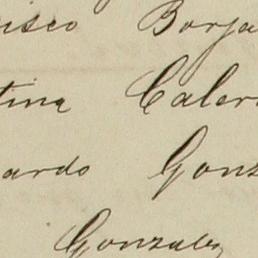 isco Borja
tina Caler
ardo Gonz
Gonzalez